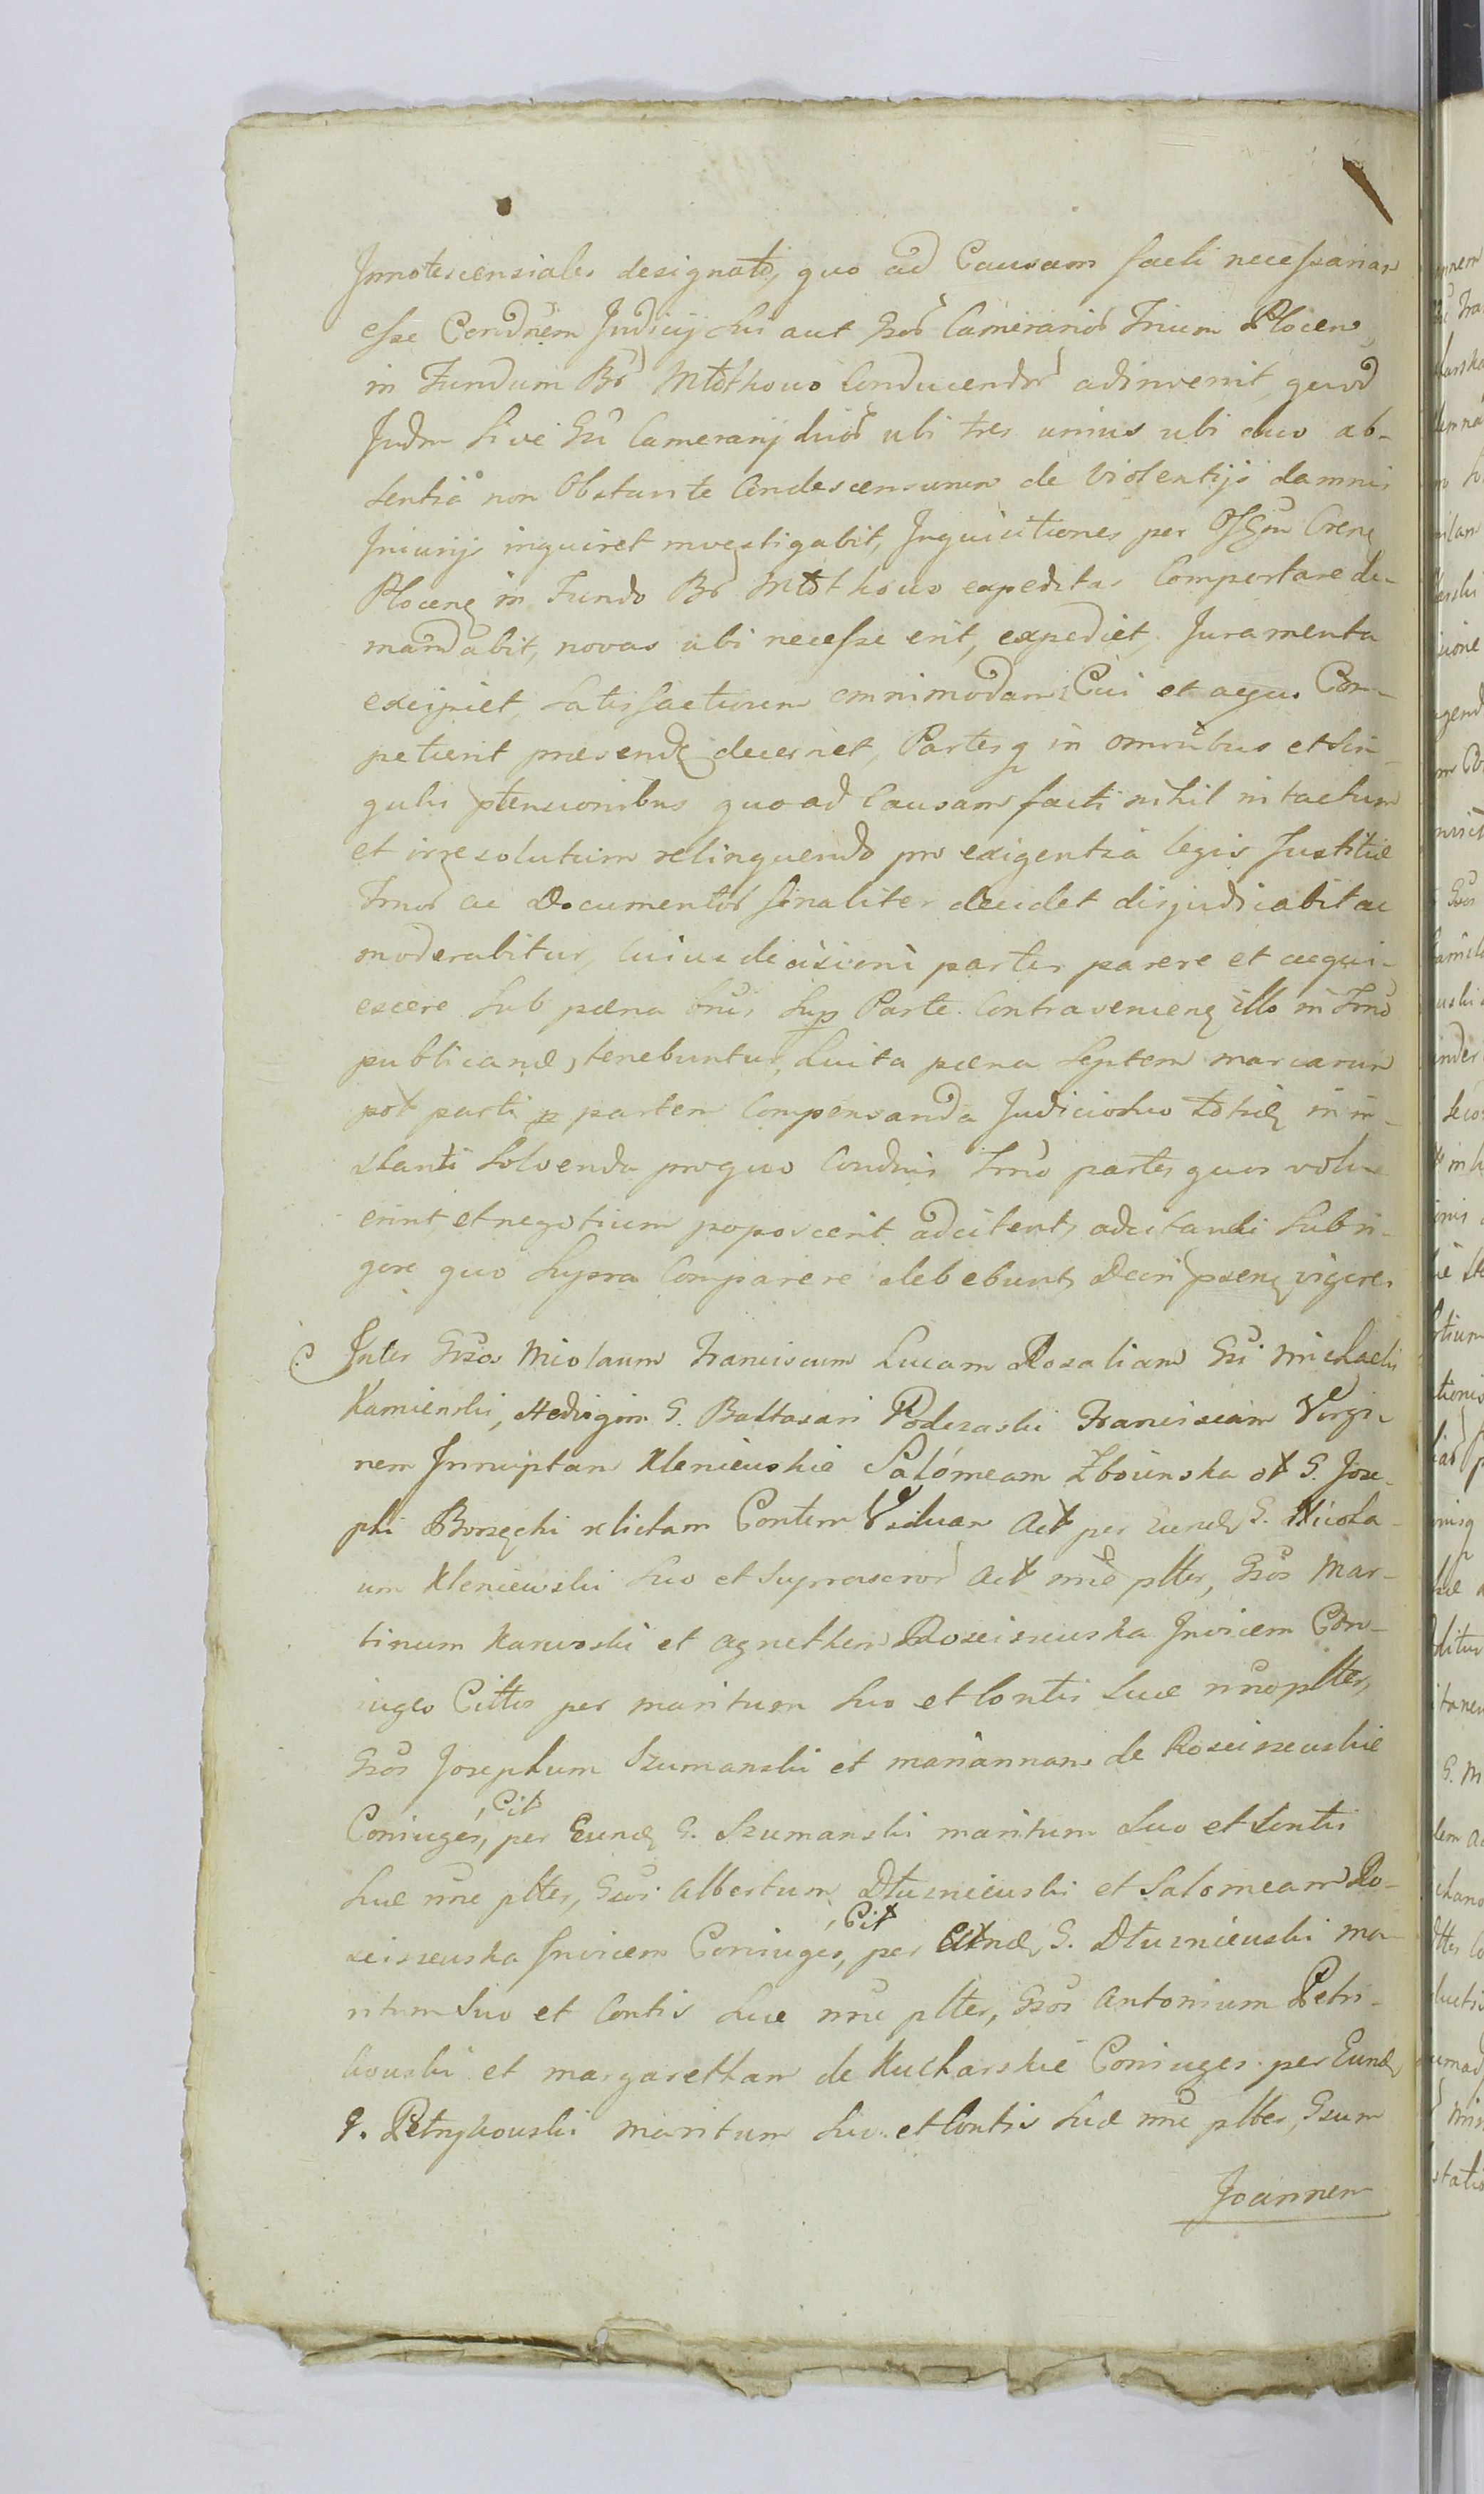 Innotescensiales designato, quo ad Causam facti necessariam
esse Condnem Judicij Sui aut Gsor Camerarior Trium Plocen
in Fundum Br Młotkowo Conducendor adinvenit, quod
Judm Sive Gsi Camerarij duor ubi tres unius ubi duo ab-
sentia non Obstante Condescensurum de violentijs damnis
Iniurijs inquiret investigabit, Inquisitiones per Offm
Plocen in Fundo Br Młotkowo expeditas Comportare de-
mandabit, novas ubi necesse erit, expediet, Juramenta
excipiet, Satisfactionem omnimodam Cui et a quo Com-
petierit praesend decernet, Partesq in omnibus et Sin-
gulis ptensionibus quo ad Causam facti nihil intactum
et irresolutum relinquendo pro exigentia legis Justitiae
Jrnor ac Documentor finaliter decidet disjudicabit ac
moderabitur, cuius decisioni partes parere et acqui-
escere Sub paena Bnis Sup Parte Contravenien illo in Trno
publicandae, tenebuntur, Luita paena Septem marcarum
pot parti p partem Compensanda Judicioduo toties in in-
stanti Solvenda pro quo Condnis Trno partes quos volu-
erint et negotium poposcerit adcitent, adcitandi Sub ri-
gore quo Supra Comparere debebunt, Decri psen vigore
Inter Gsos Nicolaum Franciscum Lucam Rosaliam Gsi Michaelis
Kamienski, Hedvigim G. Baltasari Poderaski Franciscam Virgi-
nem Innuptam Kleniewskie Salomeam Zboinska ot G. Jose-
phi Borzęcki relictam Contem Viduam Act per eund G. Nicola-
um Kleniewski Suo et Suprascror Act nne pltes, Gsos Mar-
tinum Karwoski et Agnethem Roscisewska Invicem Con-
iuges Cittos per maritum Suo et Contis Suae nno pltes,
Gsos Josephum Szumanski et mariannam de Roscissewskie
Coniuges, Cit per Eund G. Szumanski maritum Suo et Contis
Suae nne pltes, Gsos Albertum Dłuzniewski et Salomeam Ro-
scissewska Invicem Coniuges, Cit per Eund G. Dłuzniewski ma-
ritum Suo et Contis Suae nne pltes, Gsos Antonium Petri-
kouski et margaretham de Kucharskie Coniuges per Eund
G. Petrykouski maritum Suo et Contis Suae nne pltes, Gsum
Joannem